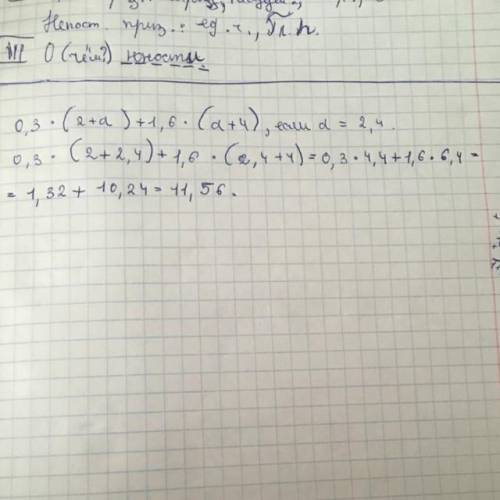 Непост. приз.: ед. ч., П. п.
III О (чём?) юности.
0,3 · (2+a) + 1,6 · (a+4), если a = 2,4.
0,3 · (2+2,4) + 1,6 · (2,4+4) = 0,3 · 4,4 + 1,6 · 6,4 =
= 1,32 + 10,24 = 11,56.